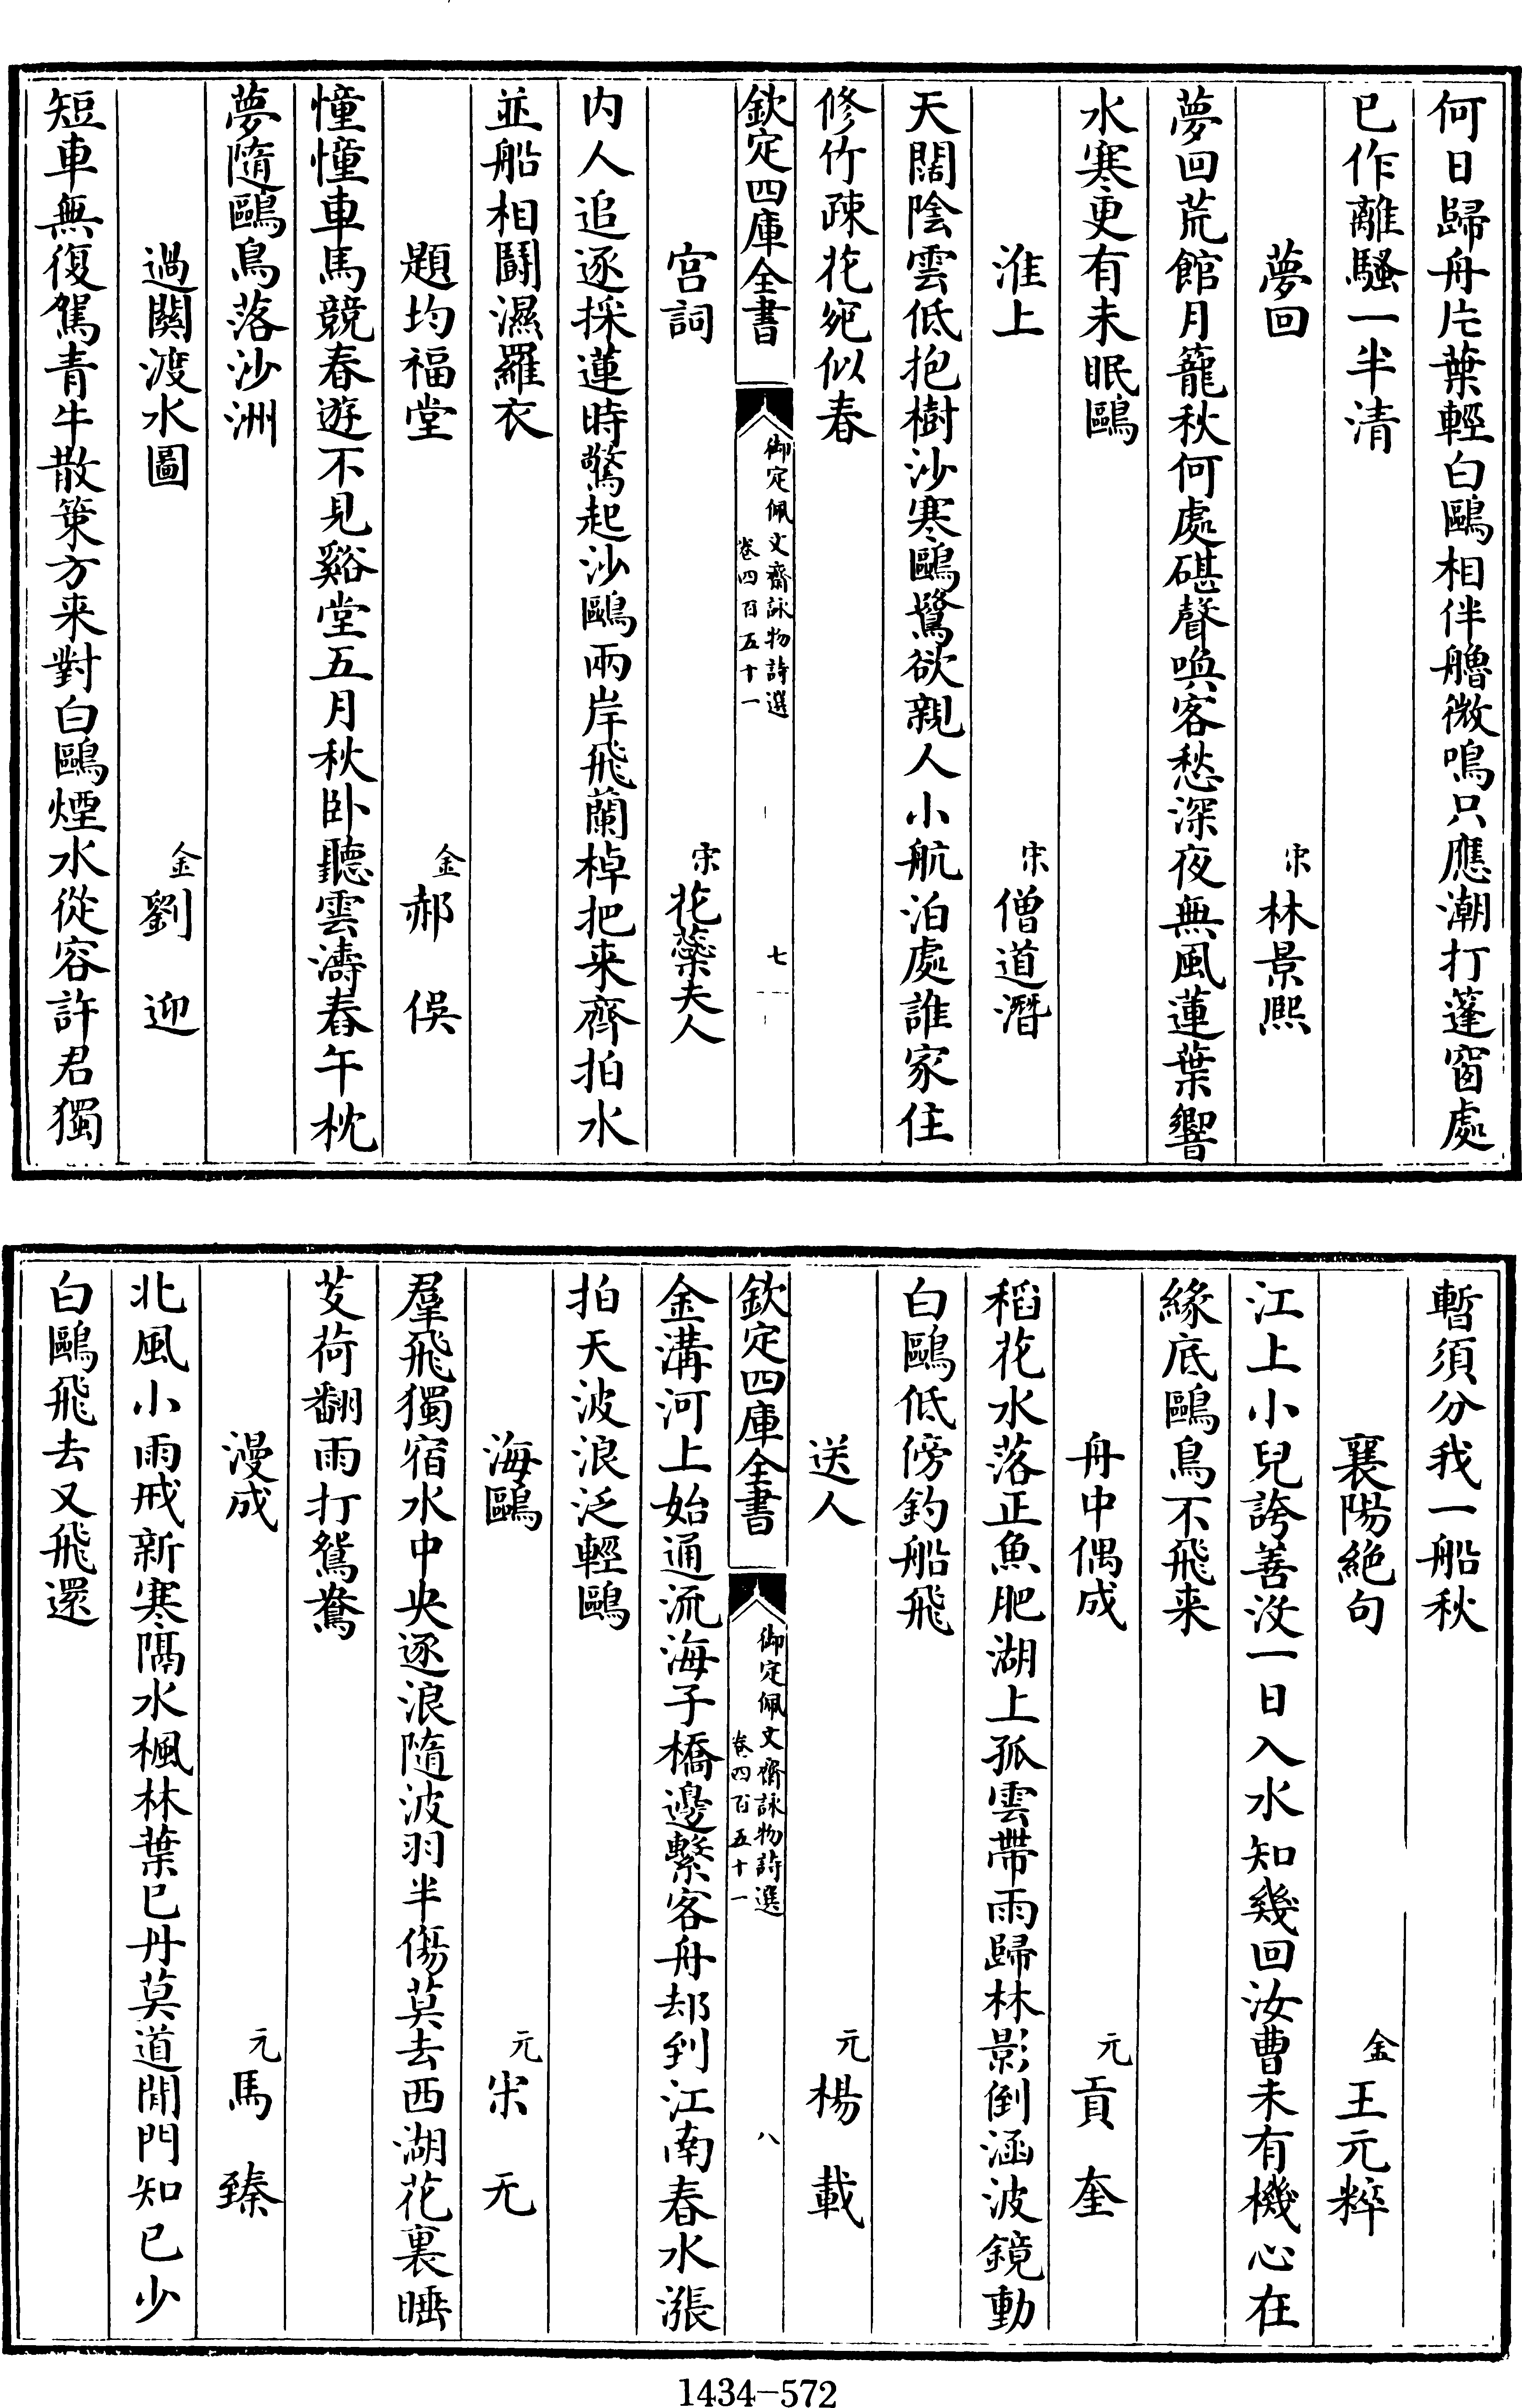 何日歸舟片葉輕白鷗相伴艪微鳴只應潮打蓬窗處
已作離騷一半清
夢回　宋林景熙
夢回荒館月籠秋何處碪聲喚客愁深夜無風蓮葉響
水寒更有未眠鷗
淮上　宋僧道潛
天闊陰雲低抱樹沙寒鷗鷺欲親人小航泊處誰家住
修竹疎花宛似春
欽定四庫全書
御定佩文齋詠物詩選
卷四百五十一
七
宮詞　宋花蘂夫人
内人追逐採蓮時驚起沙鷗兩岸飛蘭棹把来齊拍水
並船相鬭濕羅衣
題均福堂　金郝俣
憧憧車馬競春遊不見谿堂五月秋卧聽雲濤舂午枕
夢隨鷗鳥落沙洲
過關渡水圖　金劉迎
短車無復駕青牛散策方来對白鷗煙水從容許君獨
暫須分我一船秋
襄陽絶句　金王元粹
江上小兒誇善没一日入水知幾回汝曹未有機心在
緣底鷗鳥不飛来
舟中偶成　元貢奎
稻花水落正魚肥湖上孤雲帶雨歸林影倒涵波鏡動
白鷗低傍釣船飛
送人　元楊載
欽定四庫全書
御定佩文齋詠物詩選
卷四百五十一
八
金溝河上始通流海子橋邊繫客舟却到江南春水漲
拍天波浪泛輕鷗
海鷗　元宋无
羣飛獨宿水中央逐浪隨波羽半傷莫去西湖花裏睡
芰荷翻雨打鴛鴦
漫成　元馬臻
北風小雨戒新寒隔水楓林葉已丹莫道閒門知已少
白鷗飛去又飛還
1434-572